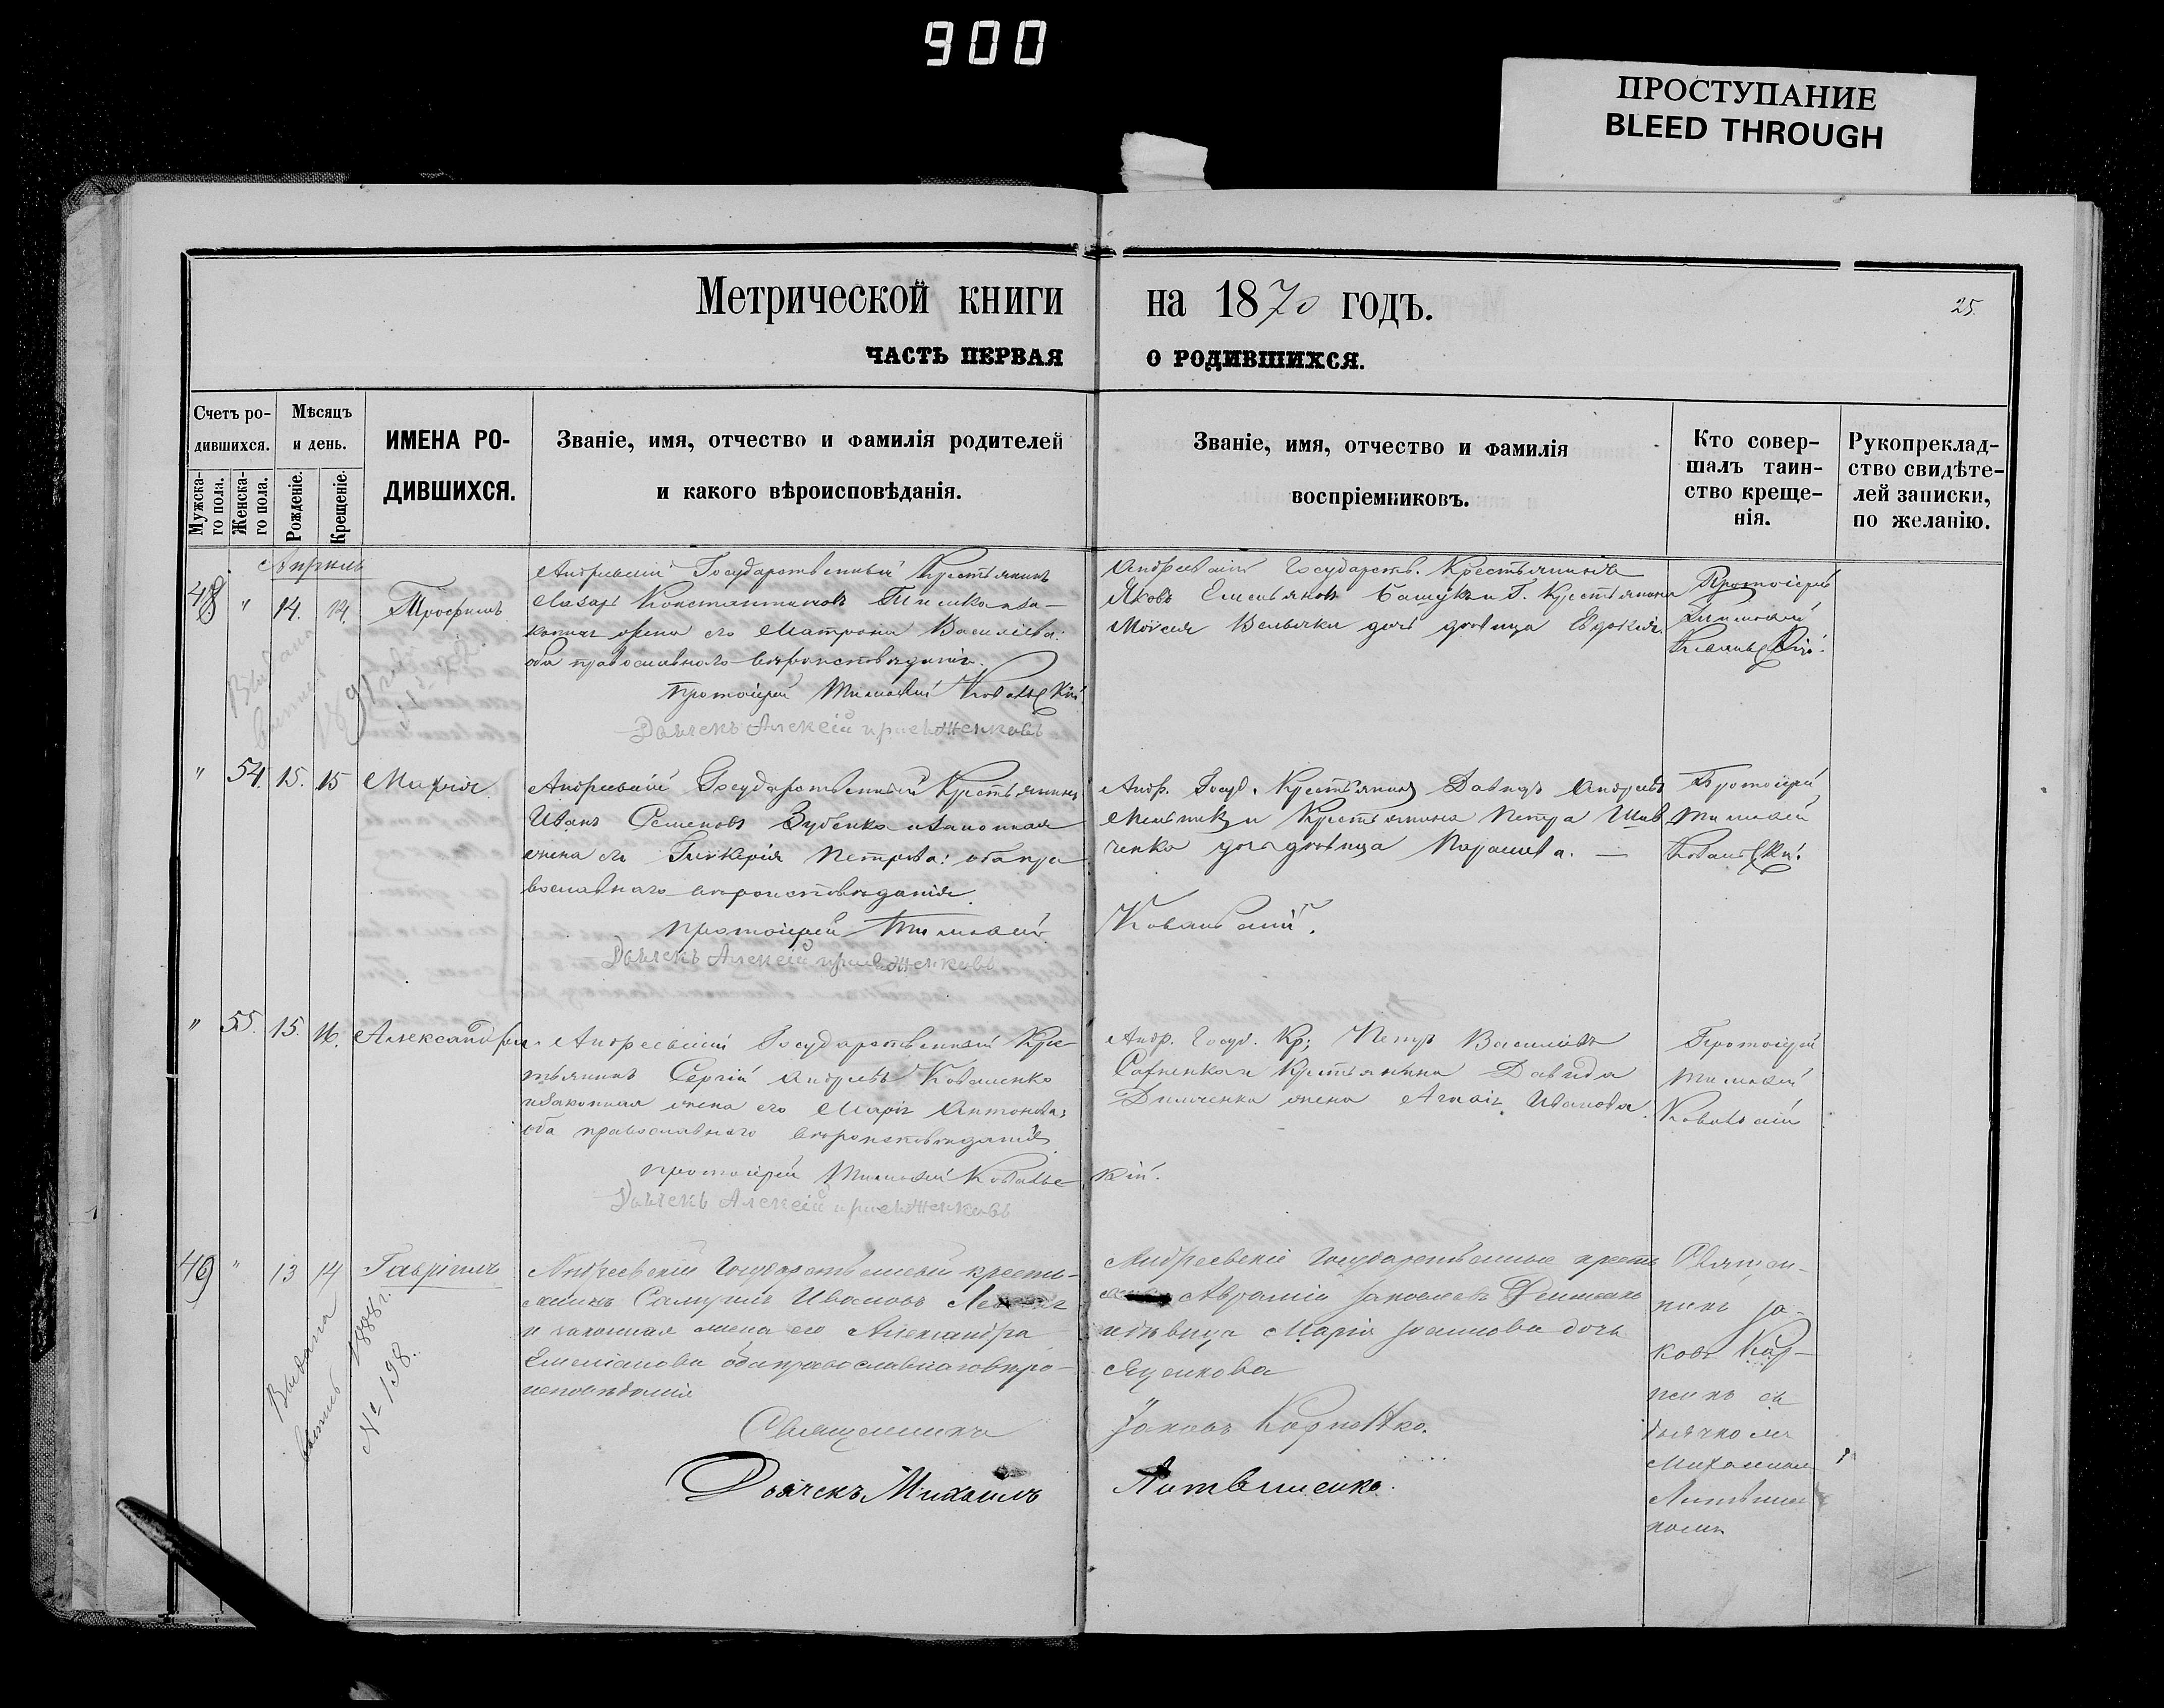 900
ПРОСТУПАНИЕ
BLEED THROUGH
Метрической книги на 1870 годъ.
25.
ЧАСТЬ ПЕРВАЯ О РОДИВШИХСЯ.
Счетъ ро-
дившихся.
Мужска-
го пола.
Женска-
го пола.
Мѣсяцъ
и день.
Рожденіе.
Крещеніе.
ИМЕНА РО-
ДИВШИХСЯ.
Званіе, имя, отчество и фамилія родителей
и какого вѣроисповѣданія.
Званіе, имя, отчество и фамилія
воспріемниковъ.
Кто совер-
шалъ таин-
ство креще-
нія.
Рукопреклад-
ство свидѣте-
лей записки,
по желанію.
Апрель
48 " 14. 14. Трофимъ
Андреевскій Государственный Крестьянинъ
Лазарь Константиновъ и за-
конная жена его Матрона Василіева:
оба православнаго вѣроисповѣданія.
протоіерей Тимофей Ковальскій.
Дьячекъ Алексій
Андреевскій Государств. Крестьянинъ
Яковъ Емельяновъ и Г. Крестьянина
Моисея дочь дѣвица Евдокія.
Протоіерей
Тимофей
Ковальскій.
Выдана
1891
" 54. 15. 15 Марія
Андреевскій Государственный Крестьянинъ
Иванъ Семеновъ Зубенко и законная
жена его Гликерія Петрова: оба пра
вославнаго вѣроисповѣданія.
протоіерей Тимофей Ковальскій.
Дьячекъ Алексій
Андр. Госуд. Крестьянинъ Давидъ Андреевъ
и Крестьянина Петра Шев
ченка дочь дѣвица
Протоіерей
Тимофей
Ковальскій.
" 55. 15. 16. Александра.
Андреевскій Государственный Кре-
стьянинъ Сергій Андреевъ Коваленко
и законная жена его Марія Антонова:
оба православнаго вѣроисповѣданія
протоіерей Тимофей Ковальс кій.
Дьячекъ Алексій
Андр. Госуд. Кр: Петръ Василіевъ
и Крестьянина Давида
жена Иванова.
Протоіерей
Тимофей
Ковальскій
49 " 13 14 Гавріилъ
Андреевскій Государственный кресть-
янинъ Самуилъ Ивановъ
и законная жена его Александра
Емеліанова оба православнаго вѣро-
исповѣданія
Священникъ Іаковъ Карпенко.
Дьячекъ Михаилъ Литвиненко.
Андреевскіе Государственные кресть
Авраамій Іаковлевъ
и дѣвица Марія Іоаннова дочь
Яценкова
Священ-
никъ Іа-
ковъ Кар-
пенко съ
дьячкомъ
Михаиломъ
Литвинен
комъ
Выдана
выпись 1888 г.
№ 198.